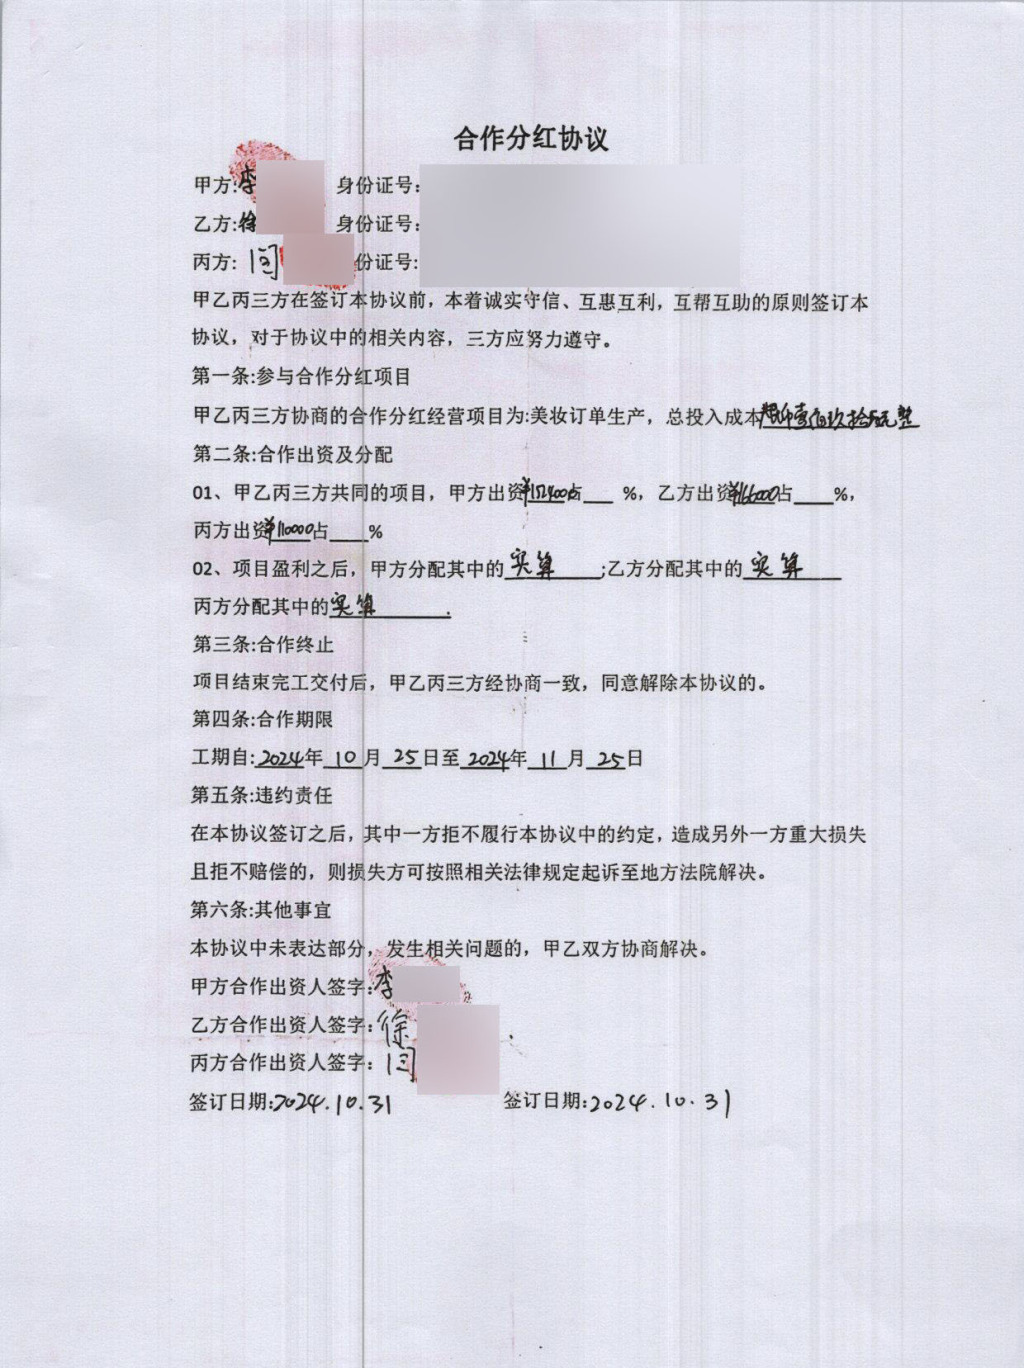 合作分红协议
甲方:李 身份证号:
乙方:徐 身份证号:
丙方: 闫 份证号:
甲乙丙三方在签订本协议前，本着诚实守信、互惠互利，互帮互助的原则签订本
协议，对于协议中的相关内容，三方应努力遵守。
第一条:参与合作分红项目
甲乙丙三方协商的合作分红经营项目为:美妆订单生产，总投入成本 壹佰玖拾 元整
第二条:合作出资及分配
01、甲乙丙三方共同的项目，甲方出资¥152400占___ %，乙方出资¥166000占____%，
丙方出资¥110000占____%
02、项目盈利之后，甲方分配其中的 实算 ;乙方分配其中的 实算
丙方分配其中的 实算 .
第三条:合作终止
项目结束完工交付后，甲乙丙三方经协商一致，同意解除本协议的。
第四条:合作期限
工期自:2024年 10 月 25 日至 2024年 11 月 25 日
第五条:违约责任
在本协议签订之后，其中一方拒不履行本协议中的约定，造成另外一方重大损失
且拒不赔偿的，则损失方可按照相关法律规定起诉至地方法院解决。
第六条:其他事宜
本协议中未表达部分，发生相关问题的，甲乙双方协商解决。
甲方合作出资人签字:李
乙方合作出资人签字:徐
丙方合作出资人签字：闫
签订日期:2024.10.31 签订日期:2024.10.31